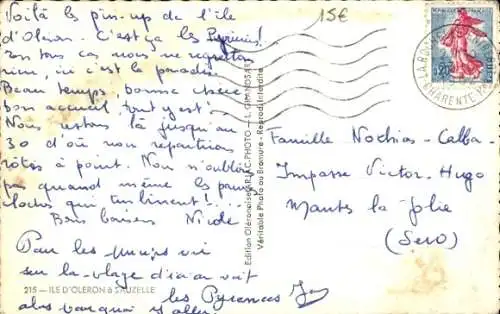 15€
Voilà les pin-up de l'île
d'Oleron - C'est ça les Pyrénées!
En tous cas nous ne regrettons
rien, ici c'est le paradis
Beau temps, bonne chère
bon accueil, tout y est!
Nous restons là jusqu'au
30 d'où nous repartirons
rôtis à point. Nous n'oublions
pas quand même les pauvres
cloches qui turbinent!...
Bons baisers Nicole
Pour les
sur la plage d'ici on voit
les Pyrénées
alors pourquoi y aller
215 - ILE D'OLERON à SAUZELLE
Edition Oléronaise ARJAC-PHOTO - L.
Véritable Photo au Bromure - Reprod. Interdite
LA ROCHELLE
CHARENTE
0,20
Famille Nochias - Calba
Impasse Victor-Hugo
Mantes la Jolie
(S&O)